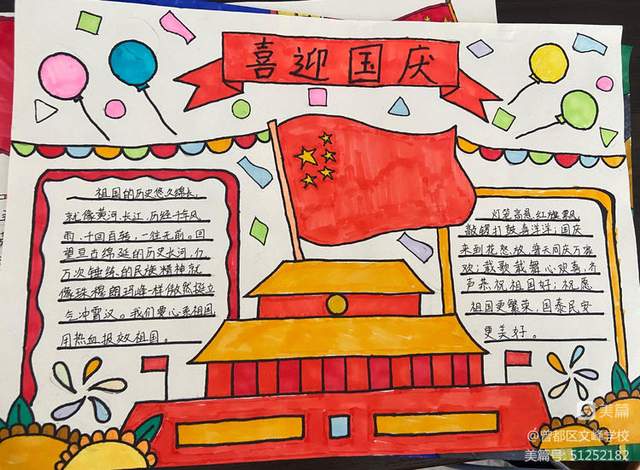 喜迎国庆
祖国的历史悠久绵长,
就像黄河、长江,历经千年风
雨,千回百转,一往无前。回
望亘古绵延的历史长河,亿
万次锤练的民族精神就
像珠穆朗玛峰一样傲然挺立
气冲霄汉。我们要心系祖国
用热血报效祖国。
灯笼高悬,红旗飘
敲锣打鼓喜洋洋;国庆
来到花怒放,普天同庆万家
欢;载歌载舞心欢喜,齐
声恭祝祖国好;祝愿
祖国更繁荣,国泰民安
更美好。
美篇
@曾都区文峰学校
美篇号:51252182